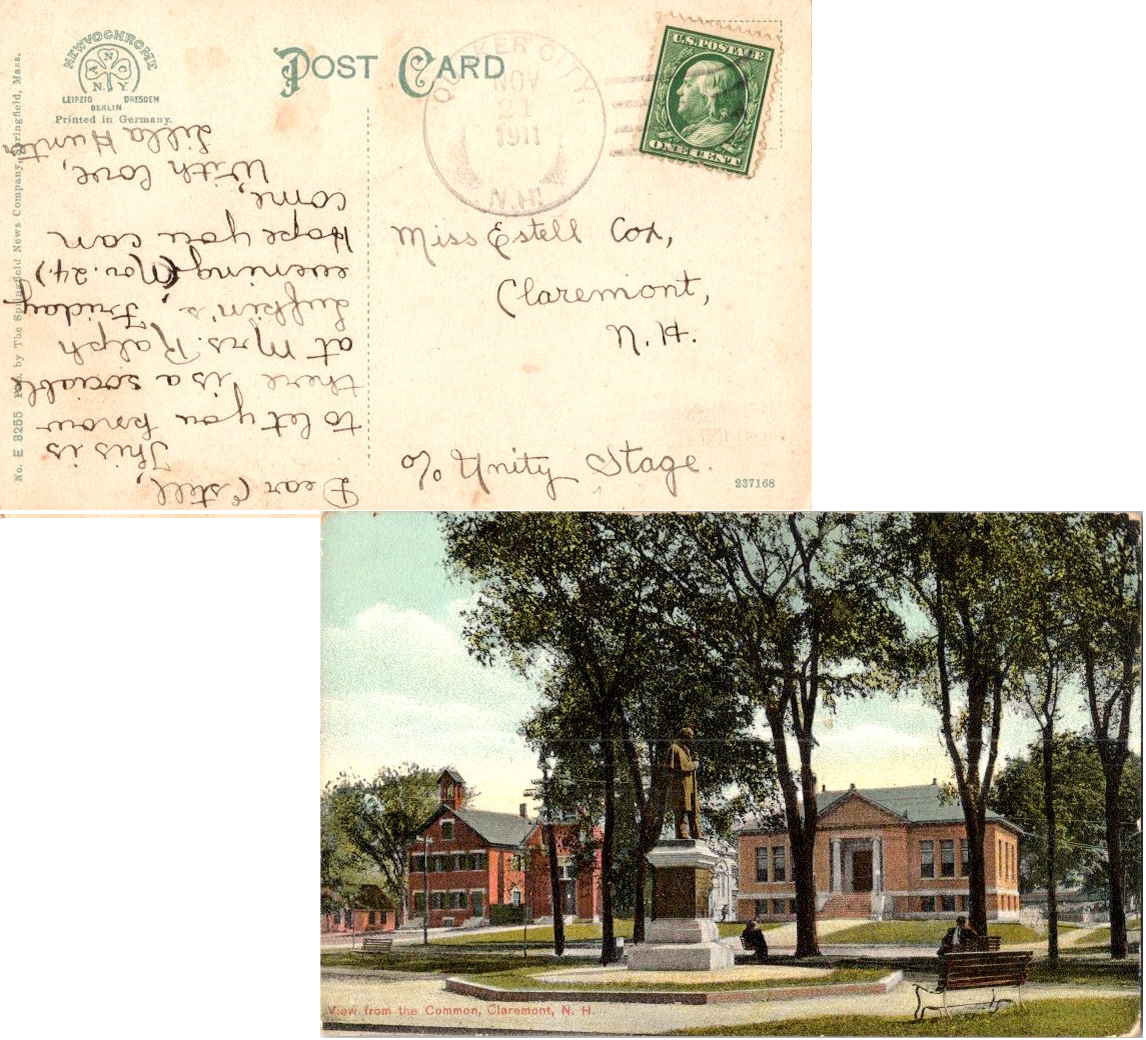 NEWVOCHROME
A N C O
N. Y.
LEIPZIG DRESDEN
BERLIN
Printed in Germany.
POST CARD
QUAKER CITY,
NOV
21
1911
N.H.
U.S. POSTAGE
ONE CENT
No. E 8255 Pub. by The Springfield News Company, Springfield, Mass.
Dear Estell,
This is
to let you know
there is a sociable
at Mrs. Ralph
Lufkin's, Friday
evening (Nov. 24.)
Hope you can
come,
With love,
Lilla Hunter
Miss Estell Cox,
Claremont,
N. H.
c/o Unity Stage.
237168
View from the Common, Claremont, N. H.